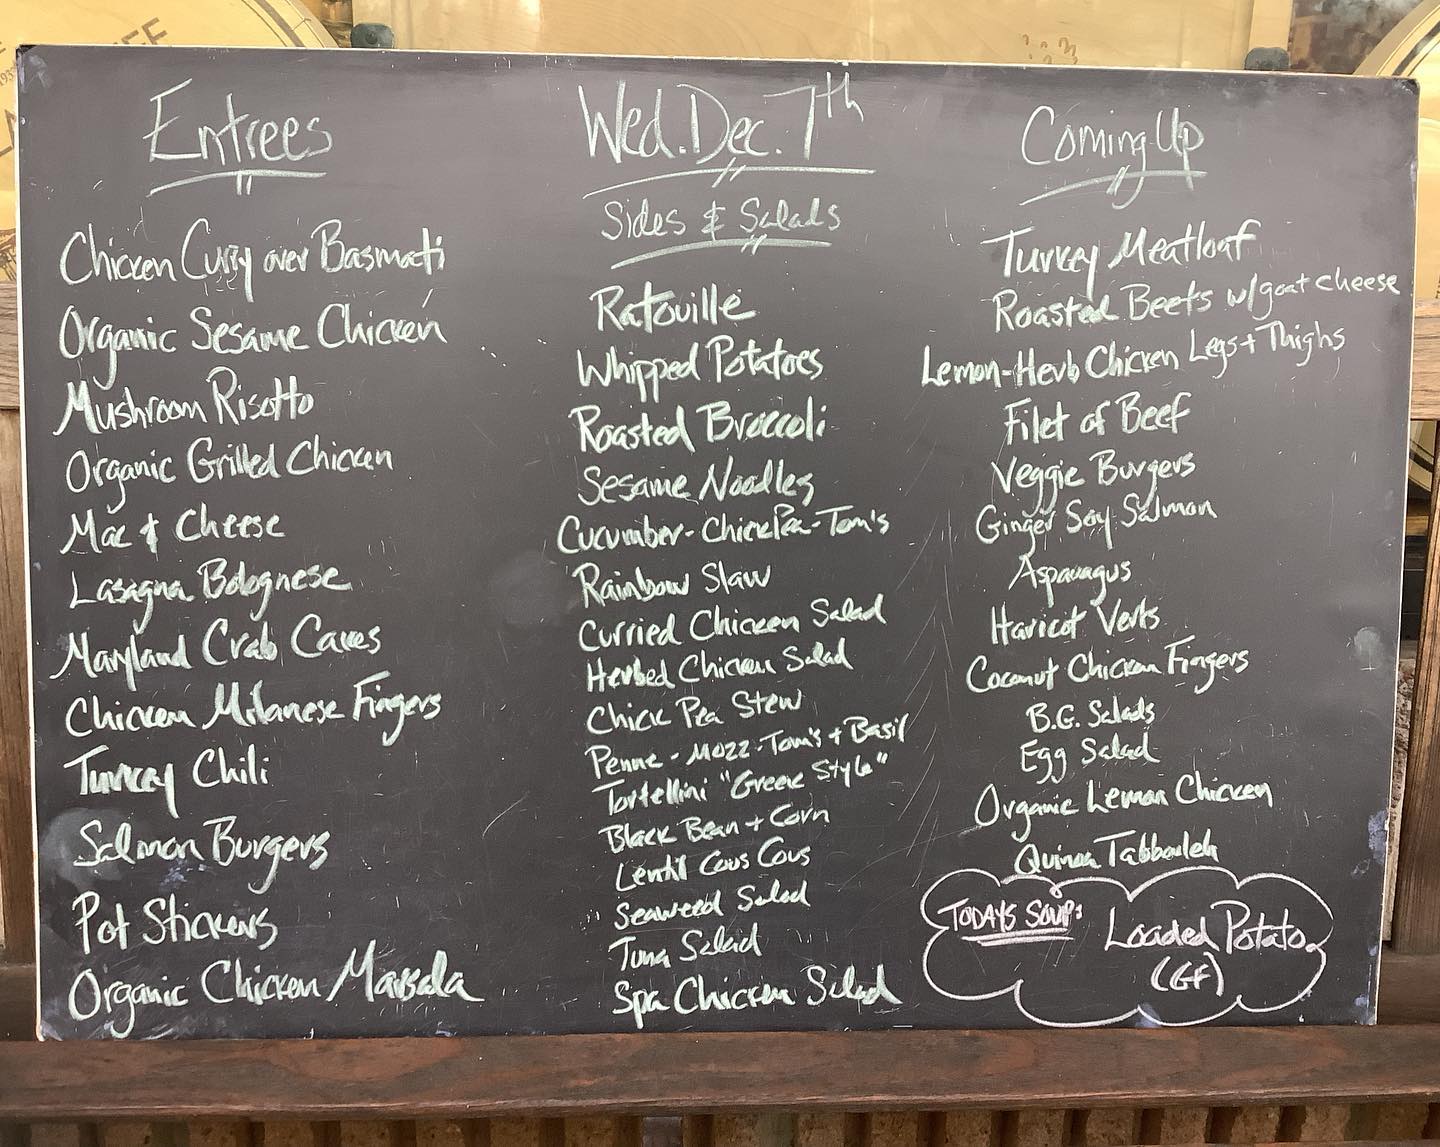 Entrees
Chicken Curry over Basmati
Organic Sesame Chicken
Mushroom Risotto
Organic Grilled Chicken
Mac & Cheese
Lasagna Bolognese
Maryland Crab Cakes
Chicken Milanese Fingers
Turkey Chili
Salmon Burgers
Pot Stickers
Organic Chicken Marsala
Wed. Dec. 7th
Sides & Salads
Ratouille
Whipped Potatoes
Roasted Broccoli
Sesame Noodles
Cucumber-ChickPea-Tom's
Rainbow Slaw
Curried Chicken Salad
Herbed Chicken Salad
Chick Pea Stew
Penne-Mozz-Tom's + Basil
Tortellini "Greek Style"
Black Bean + Corn
Lentil Cous Cous
Seaweed Salad
Tuna Salad
Spa Chicken Salad
Coming Up
Turkey Meatloaf
Roasted Beets w/goat cheese
Lemon-Herb Chicken Legs + Thighs
Filet of Beef
Veggie Burgers
Ginger Soy Salmon
Asparagus
Haricot Verts
Coconut Chicken Fingers
B.G. Salads
Egg Salad
Organic Lemon Chicken
Quinoa Tabbouleh
TODAYS SOUP: Loaded Potato
(GF)